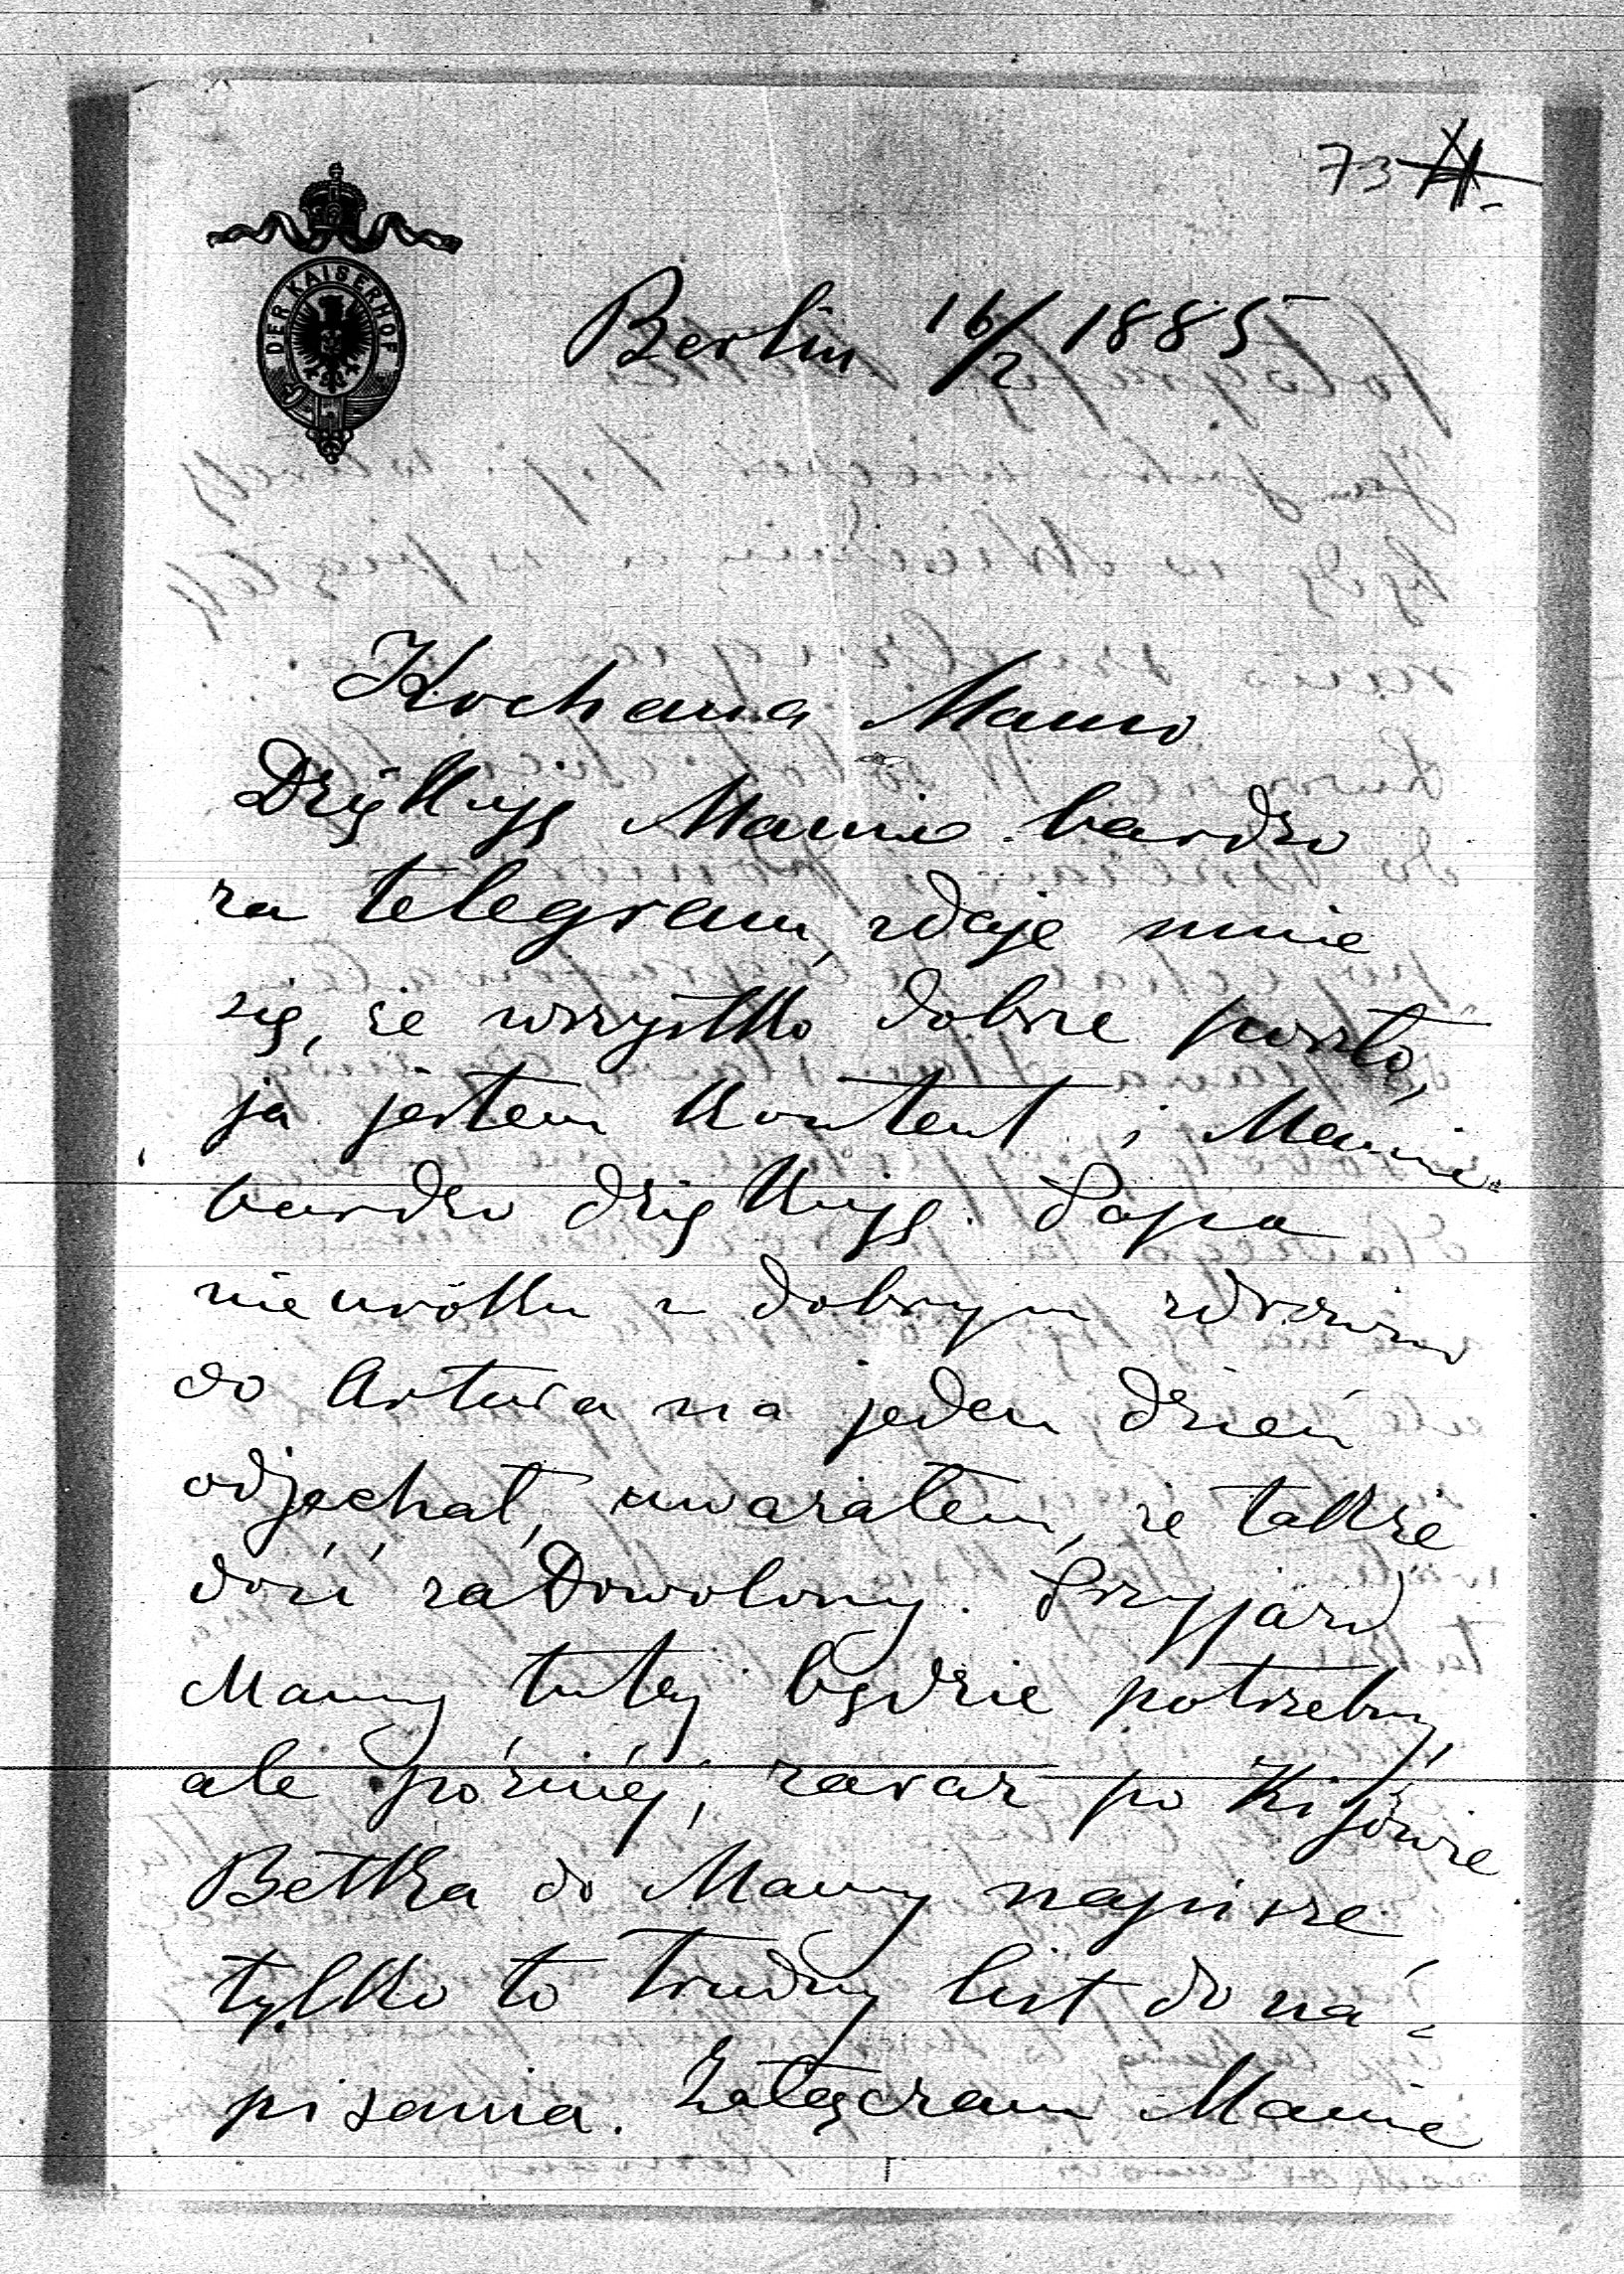 73
DER KAISERHOF
Berlin 16/2 1885
Kochana Mamo
Dziękuję Mamie bardzo
za telegram, zdaje mnie
się, że wszystko dobrze poszło,
ja jestem kontent i Mamie
bardzo dziękuję. Papa
nieuroku w dobrym zdrowiu
do Artura na jeden dzień
odjechał, uważałem, że także
dość zadowolony. Przyjazd
Mamy tutej będzie potrzebny,
ale późniéj, zaraz po
Betka do Mamy napisze
tylko to trudny list do na-
pisania. Załączam Mamie